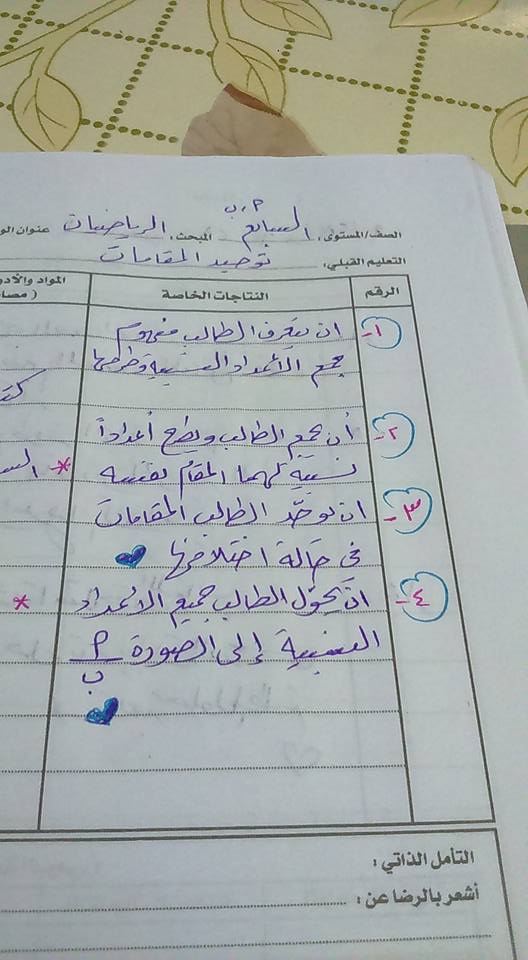 الصف/المستوى: السابع أ، ب المبحث: الرياضيات عنوان الو
التعليم القبلي: توحيد المقامات
الرقم النتاجات الخاصة المواد والأدو
( مصا
١- ان يتعرف الطالب مفهوم
جمع الأعداد النسبية وطرحها
٢- أن يجمع الطالب ويطرح أعداداً
نسبية لهما المقام نفسه
٣- ان يوحّد الطالب المقامات
في حالة اختلافها
٤- ان يحوّل الطالب جميع الاعداد
النسبية إلى الصورة أ
ب
التأمل الذاتي :
أشعر بالرضا عن :